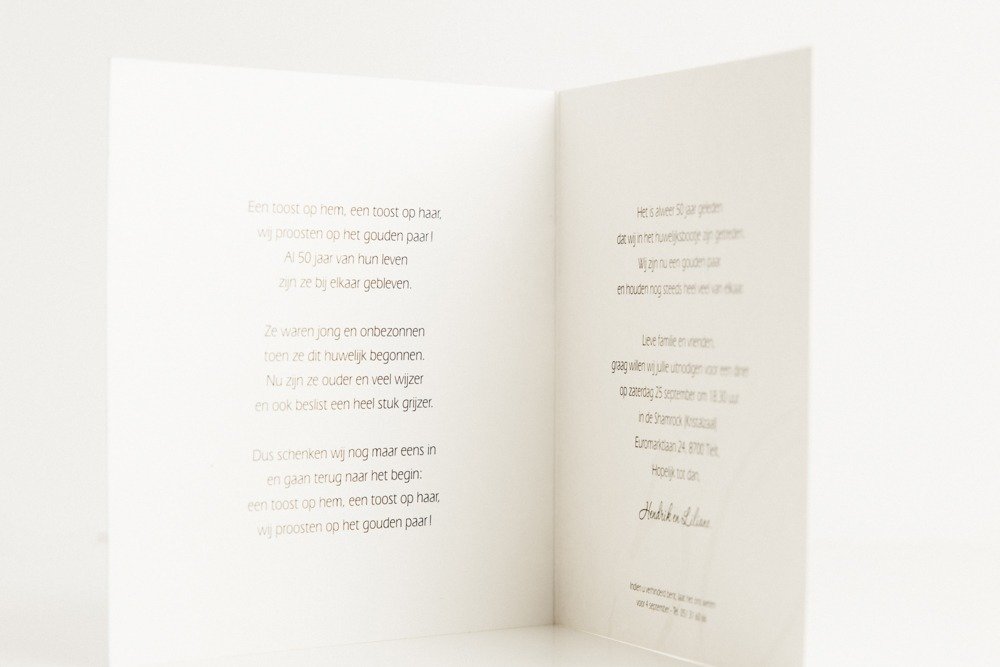 Een toost op hem, een toost op haar,
wij proosten op het gouden paar!
Al 50 jaar van hun leven
zijn ze bij elkaar gebleven.
Ze waren jong en onbezonnen
toen ze dit huwelijk begonnen.
Nu zijn ze ouder en veel wijzer
en ook beslist een heel stuk grijzer.
Dus schenken wij nog maar eens in
en gaan terug naar het begin:
een toost op hem, een toost op haar,
wij proosten op het gouden paar!
Het is alweer 50 jaar geleden
dat wij in het huwelijksbootje zijn getreden.
Wij zijn nu een gouden paar
en houden nog steeds heel veel van elkaar.
Lieve familie en vrienden,
graag willen wij jullie uitnodigen voor een diner
op zaterdag 25 september om 18.30 uur
in de Shamrock (Kristalzaal)
Euromarktlaan 24, 8700 Tielt.
Hopelijk tot dan,
Hendrik en Liliane
Indien u verhinderd bent, laat het ons weten
voor 4 september - Tel. 051